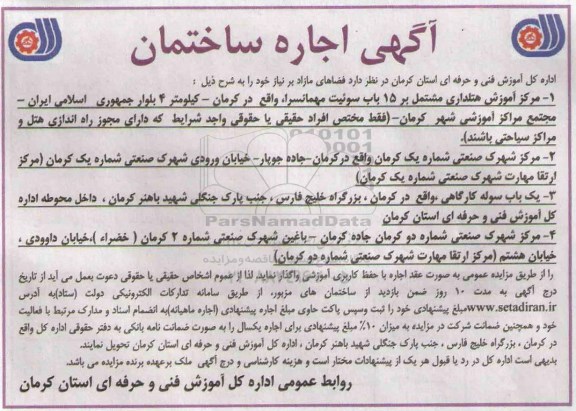 آگهی اجاره ساختمان
اداره کل آموزش فنی و حرفه ای استان کرمان در نظر دارد فضاهای مازاد بر نیاز خود را به شرح ذیل :
۱- مرکز آموزش هتلداری مشتمل بر ۱۵ باب سوئیت مهمانسرا، واقع در کرمان – کیلومتر ۴ بلوار جمهوری اسلامی ایران –
مجتمع مراکز آموزشی شهر کرمان-(فقط مختص افراد حقیقی یا حقوقی واجد شرایط که دارای مجوز راه اندازی هتل و
مراکز سیاحتی باشند).
۲- مرکز شهرک صنعتی شماره یک کرمان واقع درکرمان-جاده جوپار- خیابان ورودی شهرک صنعتی شماره یک کرمان (مرکز
ارتقا مهارت شهرک صنعتی شماره یک کرمان)
۳- یک باب سوله کارگاهی ،واقع در کرمان ، بزرگراه خلیج فارس ، جنب پارک جنگلی شهید باهنر کرمان ، داخل محوطه اداره
کل آموزش فنی و حرفه ای استان کرمان
۴- مرکز شهرک صنعتی شماره دو کرمان جاده کرمان – باغین شهرک صنعتی شماره ۲ کرمان ( خضراء )،خیابان داوودی ،
خیابان هشتم (مرکز ارتقا مهارت شهرک صنعتی شماره دو کرمان)
را از طریق مزایده عمومی به صورت عقد اجاره با حفظ کاربری آموزشی واگذار نماید. لذا از عموم اشخاص حقیقی یا حقوقی دعوت بعمل می آید از تاریخ
درج آگهی به مدت ۱۰ روز ضمن بازدید از ساختمان های مزبور، از طریق سامانه تدارکات الکترونیکی دولت (ستاد)به آدرس
www.setadiran.ir مبلغ پیشنهادی خود را ثبت وسپس پاکت حاوی مبلغ اجاره پیشنهادی (اجاره ماهیانه)به انضمام اسناد و مدارک مرتبط با فعالیت
خود و همچنین ضمانت شرکت در مزایده به میزان ۱۰٪ مبلغ پیشنهادی برای اجاره یکسال را به صورت ضمانت نامه بانکی به دفتر حقوقی اداره کل واقع
در کرمان ، بزرگراه خلیج فارس ، جنب پارک جنگلی شهید باهنر کرمان ، اداره کل آموزش فنی و حرفه ای استان کرمان تحویل نمایند.
بدیهی است اداره کل در رد یا قبول هر یک از پیشنهادات مختار است و هزینه کارشناسی و درج آگهی ملک برعهده برنده مزایده می باشد.
روابط عمومی اداره کل آموزش فنی و حرفه ای استان کرمان
ParsNamadData